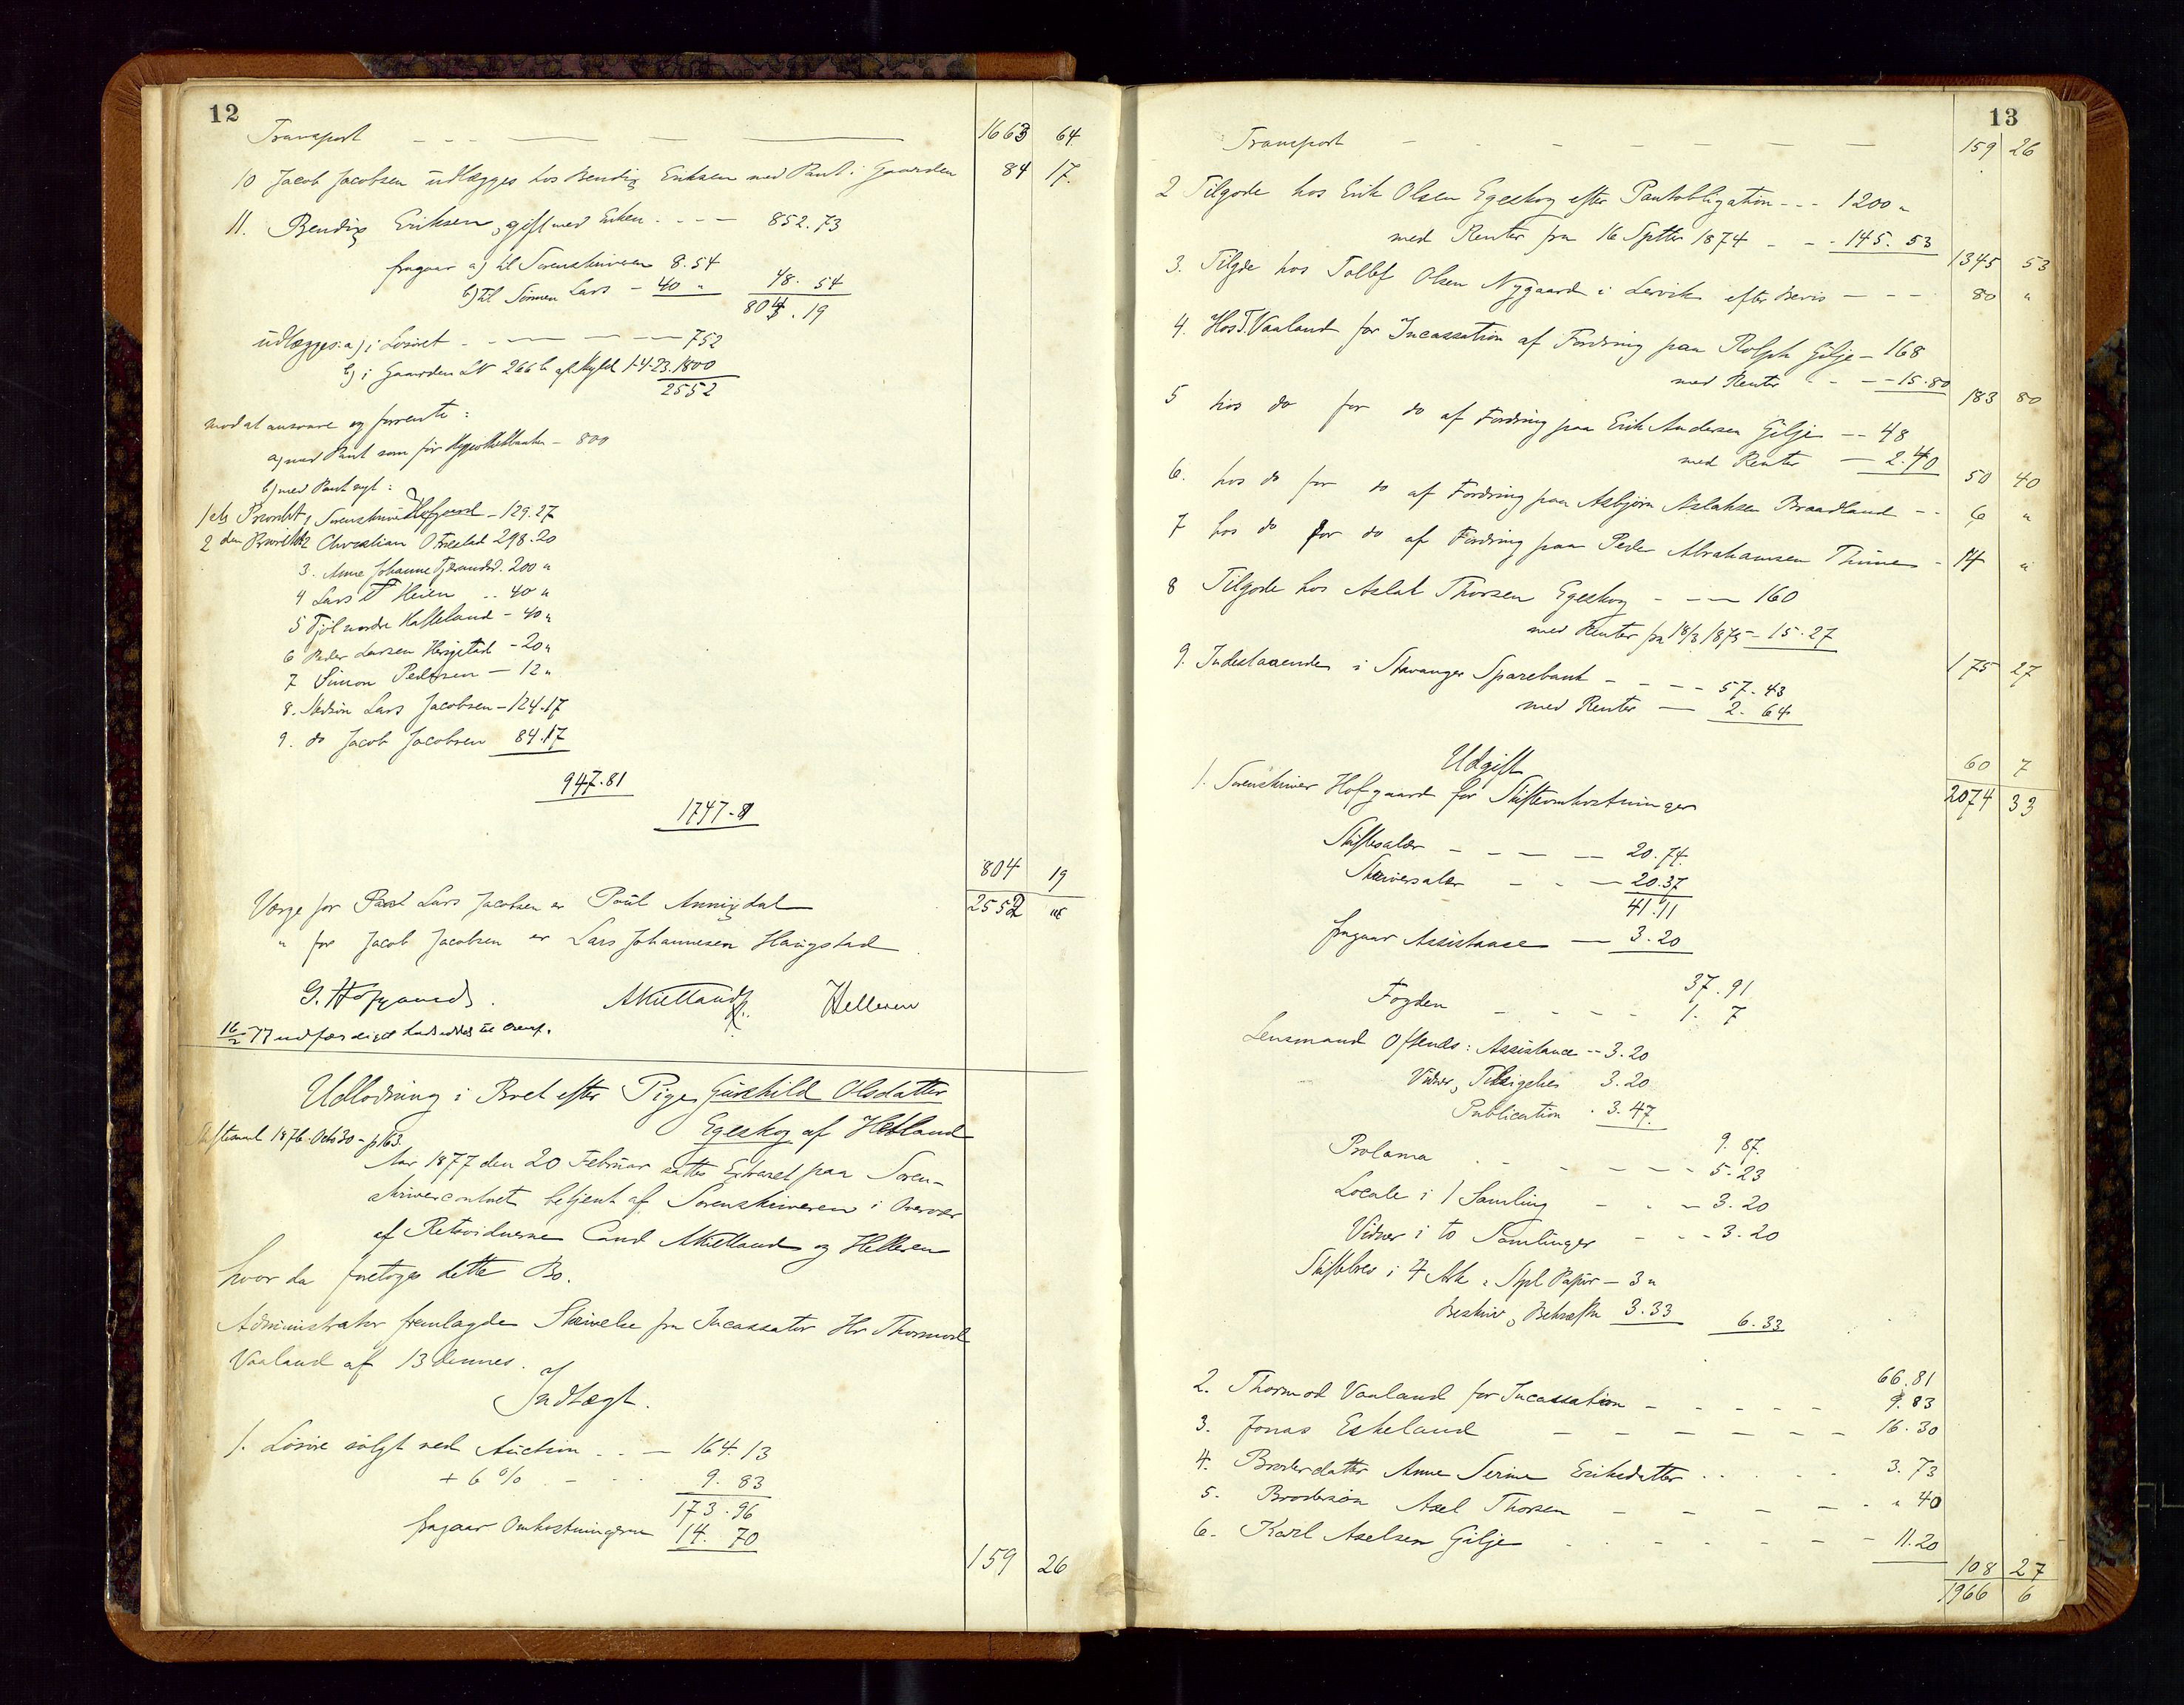 12
Transport - - - — — — 1663 64
10 Jacob Jacobsen udlægges hos Bendix Eriksen med Pant i Gaarden 84 17.
11. Bendix Eriksen, gift med Enken . - - - 852.73
fragaar a) til Sorenskriveren 8.54
b) til Sønnen Lars - 40 " 48.54
804.19
udlægges: a) i Løsøret - - - - 752
b) i Gaarden LN 266 b af Skyld 1-4-23. 1800
2552
mod at ansvare og forrente:
a) med Pant som før Hypothekbanken - 800
b) med Pant nyt:
1ste Prioritet, Sorenskriver Hofgaard - 129.27
2 den Prioritet 2 Christian O Tveslad 298.20
3. Anne Johanne Tjerandsd. 200 "
4 Lars T Heien .. 40 "
5 Tjøl nordre Hafteland - 40 "
6 Peder Larsen Haugstad - 20 "
7 Simon Pedersen - 12 "
8. Stedsøn Lars Jacobsen - 124.17
9. do Jacob Jacobsen 84.17
947.81
1747.81
804 19
Værge for Lars Jacobsen er Poul Annixdal 2552 "
" for Jacob Jacobsen er Lars Johannesen Haugstad
G. Hofgaard. AKielland Helleren
16/2 77 udfærdiget
Udlodning i Boet efter Pige Gunhild Olsdatter
Egeskog af Hetland
Skiftesaml 1876 Octb 30 - p 163.
Aar 1877 den 20 Februar sattes Extraret paa Soren-
skrivercontoret betjent af Sorenskriveren i Overvær
af Retsvidnerne Cand AKielland og Helleren
hvor da foretoges dette Bo.
Administrator fremlagde Skrivelse fra Incassator Hr Thormod
Vaaland af 13 dennes.
Indtægt.
1. Løsøre solgt ved Auction . . - 164.13
+ 6 % - . . 9.83
173.96
fragaar Omkostningerne 14.70
159 26
13
Transport - - - - - - - 159 26
2 Tilgode hos Erik Olsen Egeskog efter Pantobligation - - - 1200 "
med Renter fra 16 Septbr 1874 - - - 145.53
1345 53
3. Tilgode hos Tollef Olsen Nygaard i Lervik efter Bevis - - - 80 "
4. Hos T. Vaaland for Incassation af Fordring paa Rolph Gilje - 168
med Renter - - - 15.80
183 80
5 hos do for do af Fordring paa Erik Andersen Gilje - - 48
med Renter - 2.40
50 40
6. hos do for do af Fordring paa Asbjørn Aslaksen Braadland - - 6 "
7 hos do for do af Fordring paa Peder Abrahamsen Thime - 14 "
8 Tilgode hos Aslak Thorsen Egeskog - - - 160
med Renter fra 18/3 1875 - 15.27
175 27
9. Indestaaende i Stavanger Sparebank - - - - 57.43
med Renter - 2.64
60 7
2074 33
Udgift
1. Sorenskriver Hofgaard for Skifteomkostninger
Skiftesalær - - - - 20.74
Skriversalær - - - 20.37
41.11
fragaar Assistance - 3.20
37.91
Fogden - - - - 1.7
Lensmand Oftendes: Assistance - - 3.20
Vidner, Tilsigelse 3.20
Publication . 3.47.
9.87.
Proklama - - - - - - 5.23
Locale i 1 Samling - - - 3.20
Vidner i to Samlinger - - - 3.20
Skiftebrev i 4 Ark. Stpl Papir - 3 "
Beskriv, Bekræftn 3.33 6.33
66.81
2. Thormod Vaaland for Incassation - - - - - 9.83
3. Jonas Eskeland - - - - - - 16.30
4. Broderdatter Anne Serine Eriksdatter . . . . . 3.73
5. Brodersøn Axel Thorsen - - - - - " 40
6. Karl Axelsen Gilje . . . - - - 11.20
108 27
1966 6